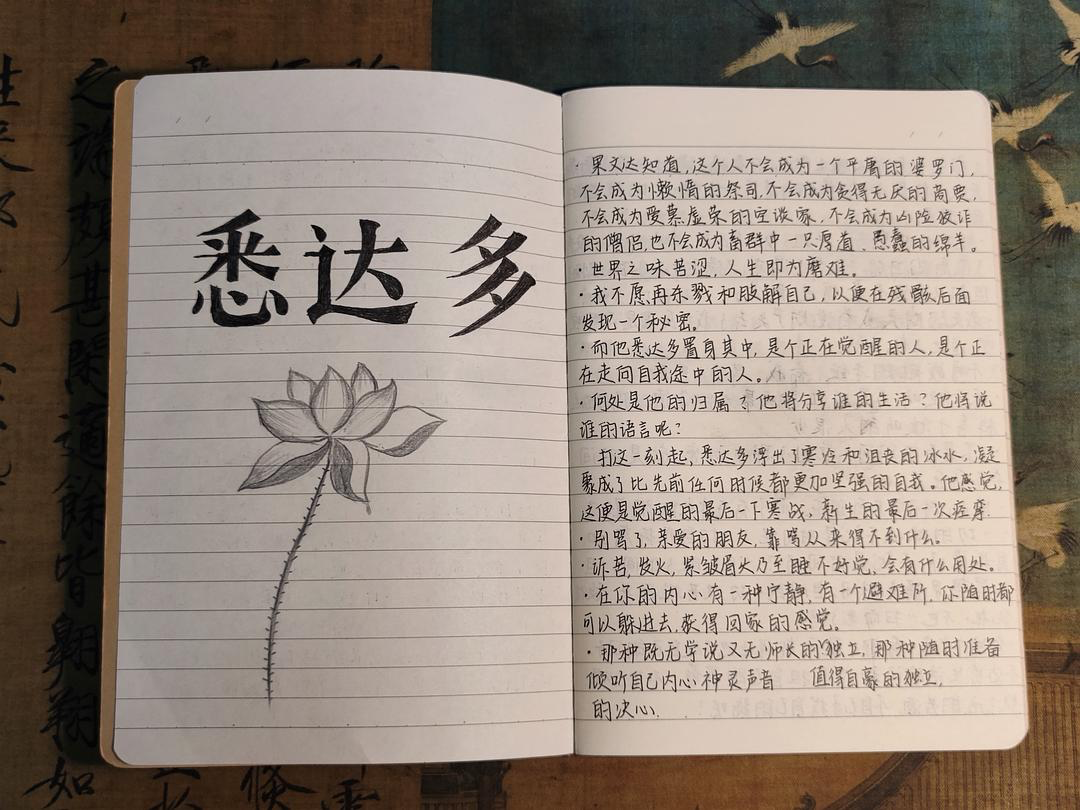 悉达多
· 果文达知道，这个人不会成为一个平庸的婆罗门，
不会成为懒惰的祭司，不会成为贪得无厌的商贾，
不会成为爱慕虚荣的空谈家，不会成为凶险狡诈
的僧侣，也不会成为畜群中一只厚道、愚蠢的绵羊。
· 世界之味苦涩，人生即为磨难。
· 我不愿再杀戮和肢解自己，以便在残骸后面
发现一个秘密。
· 而他悉达多置身其中，是个正在觉醒的人，是个正
在走向自我途中的人。
· 何处是他的归属？他将分享谁的生活？他将说
谁的语言呢？
打这一刻起，悉达多浮出了寒冷和沮丧的冰水，凝
聚成了比先前任何时候都更加坚强的自我。他感觉，
这便是觉醒的最后一下寒战，新生的最后一次痉挛
· 别骂了，亲爱的朋友，靠骂从来得不到什么。
· 诉苦，发火，紧皱眉头乃至睡不好觉，会有什么用处。
· 在你的内心有一种宁静，有一个避难所，你随时都
可以躲进去，获得回家的感觉。
· 那种既无学说又无师长的独立，那种随时准备
倾听自己内心神灵声音 值得自豪的独立，
的决心。
之
甚
闲
适
馀
皆
翱
翔
如